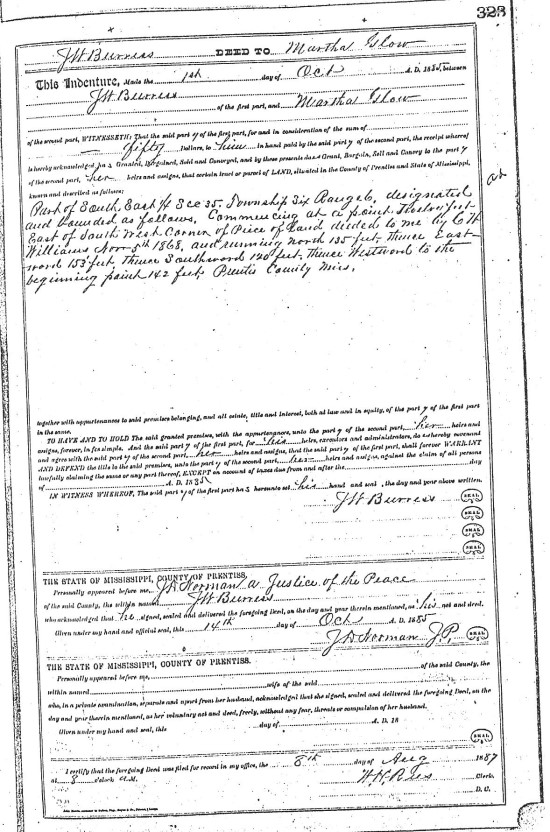 323
J W Burress DEED TO Martha Glow
This Indenture, Made the 1st day of Oct A. D. 1885, between
J W Burress of the first part, and Martha Glow
of the second part, WITNESSETH: That the said party of the first part, for and in consideration of the sum of
fifty Dollars, to him in hand paid by the said party of the second part, the receipt whereof
is hereby acknowledged, has Granted, Bargained, Sold and Conveyed, and by these presents does Grant, Bargain, Sell and Convey to the party
of the second part, her heirs and assigns, that certain tract or parcel of LAND, situated in the County of Prentiss and State of Mississippi,
known and described as follows:
Part of South East 1/4 Sec 35. Township Six Range 6, designated
and bounded as follows. Commencing at a point Twelve feet
East of South West Corner of Piece of Land deeded to me by C H
Williams Nov 5th 1868, and running north 135 feet, thence East-
ward 153 feet thence Southward 140 feet, thence Westward to the
beginning point 142 feet. Prentis County Miss.
together with appurtenances to said premises belonging, and all estate, title and interest, both at law and in equity, of the party of the first part
in the same.
TO HAVE AND TO HOLD The said granted premises, with the appurtenances, unto the party of the second part, her heirs and
assigns, forever, in fee simple. And the said party of the first part, for his heirs, executors and administrators, do hereby covenant
and agree with the said party of the second part, her heirs and assigns, that the said party of the first part, shall forever WARRANT
AND DEFEND the title to the said premises, unto the party of the second part, her heirs and assigns, against the claim of all persons
lawfully claiming the same or any part thereof, EXCEPT on account of taxes due from and after the day
of A. D. 1885
IN WITNESS WHEREOF, The said party of the first part has hereunto set his hand and seal, the day and year above written.
J W Burress SEAL
SEAL
SEAL
SEAL
THE STATE OF MISSISSIPPI, COUNTY OF PRENTISS,
Personally appeared before me, J D Norman a Justice of the Peace
of the said County, the within named J W Burress
who acknowledged that he signed, sealed and delivered the foregoing Deed, on the day and year therein mentioned, as his act and deed.
Given under my hand and official seal, this 14th day of Oct A. D. 1885
J D Norman J.P. SEAL
THE STATE OF MISSISSIPPI, COUNTY OF PRENTISS.
Personally appeared before me, of the said County, the
within named wife of the said
who, in a private examination, separate and apart from her husband, acknowledged that she signed, sealed and delivered the foregoing Deed, on the
day and year therein mentioned, as her voluntary act and deed, freely, without any fear, threats or compulsion of her husband.
Given under my hand and seal, this day of A. D. 18
SEAL
I certify that the foregoing Deed was filed for record in my office, the 8th day of Aug 1887
at 8 o'clock A.M. Clerk.
D. C.